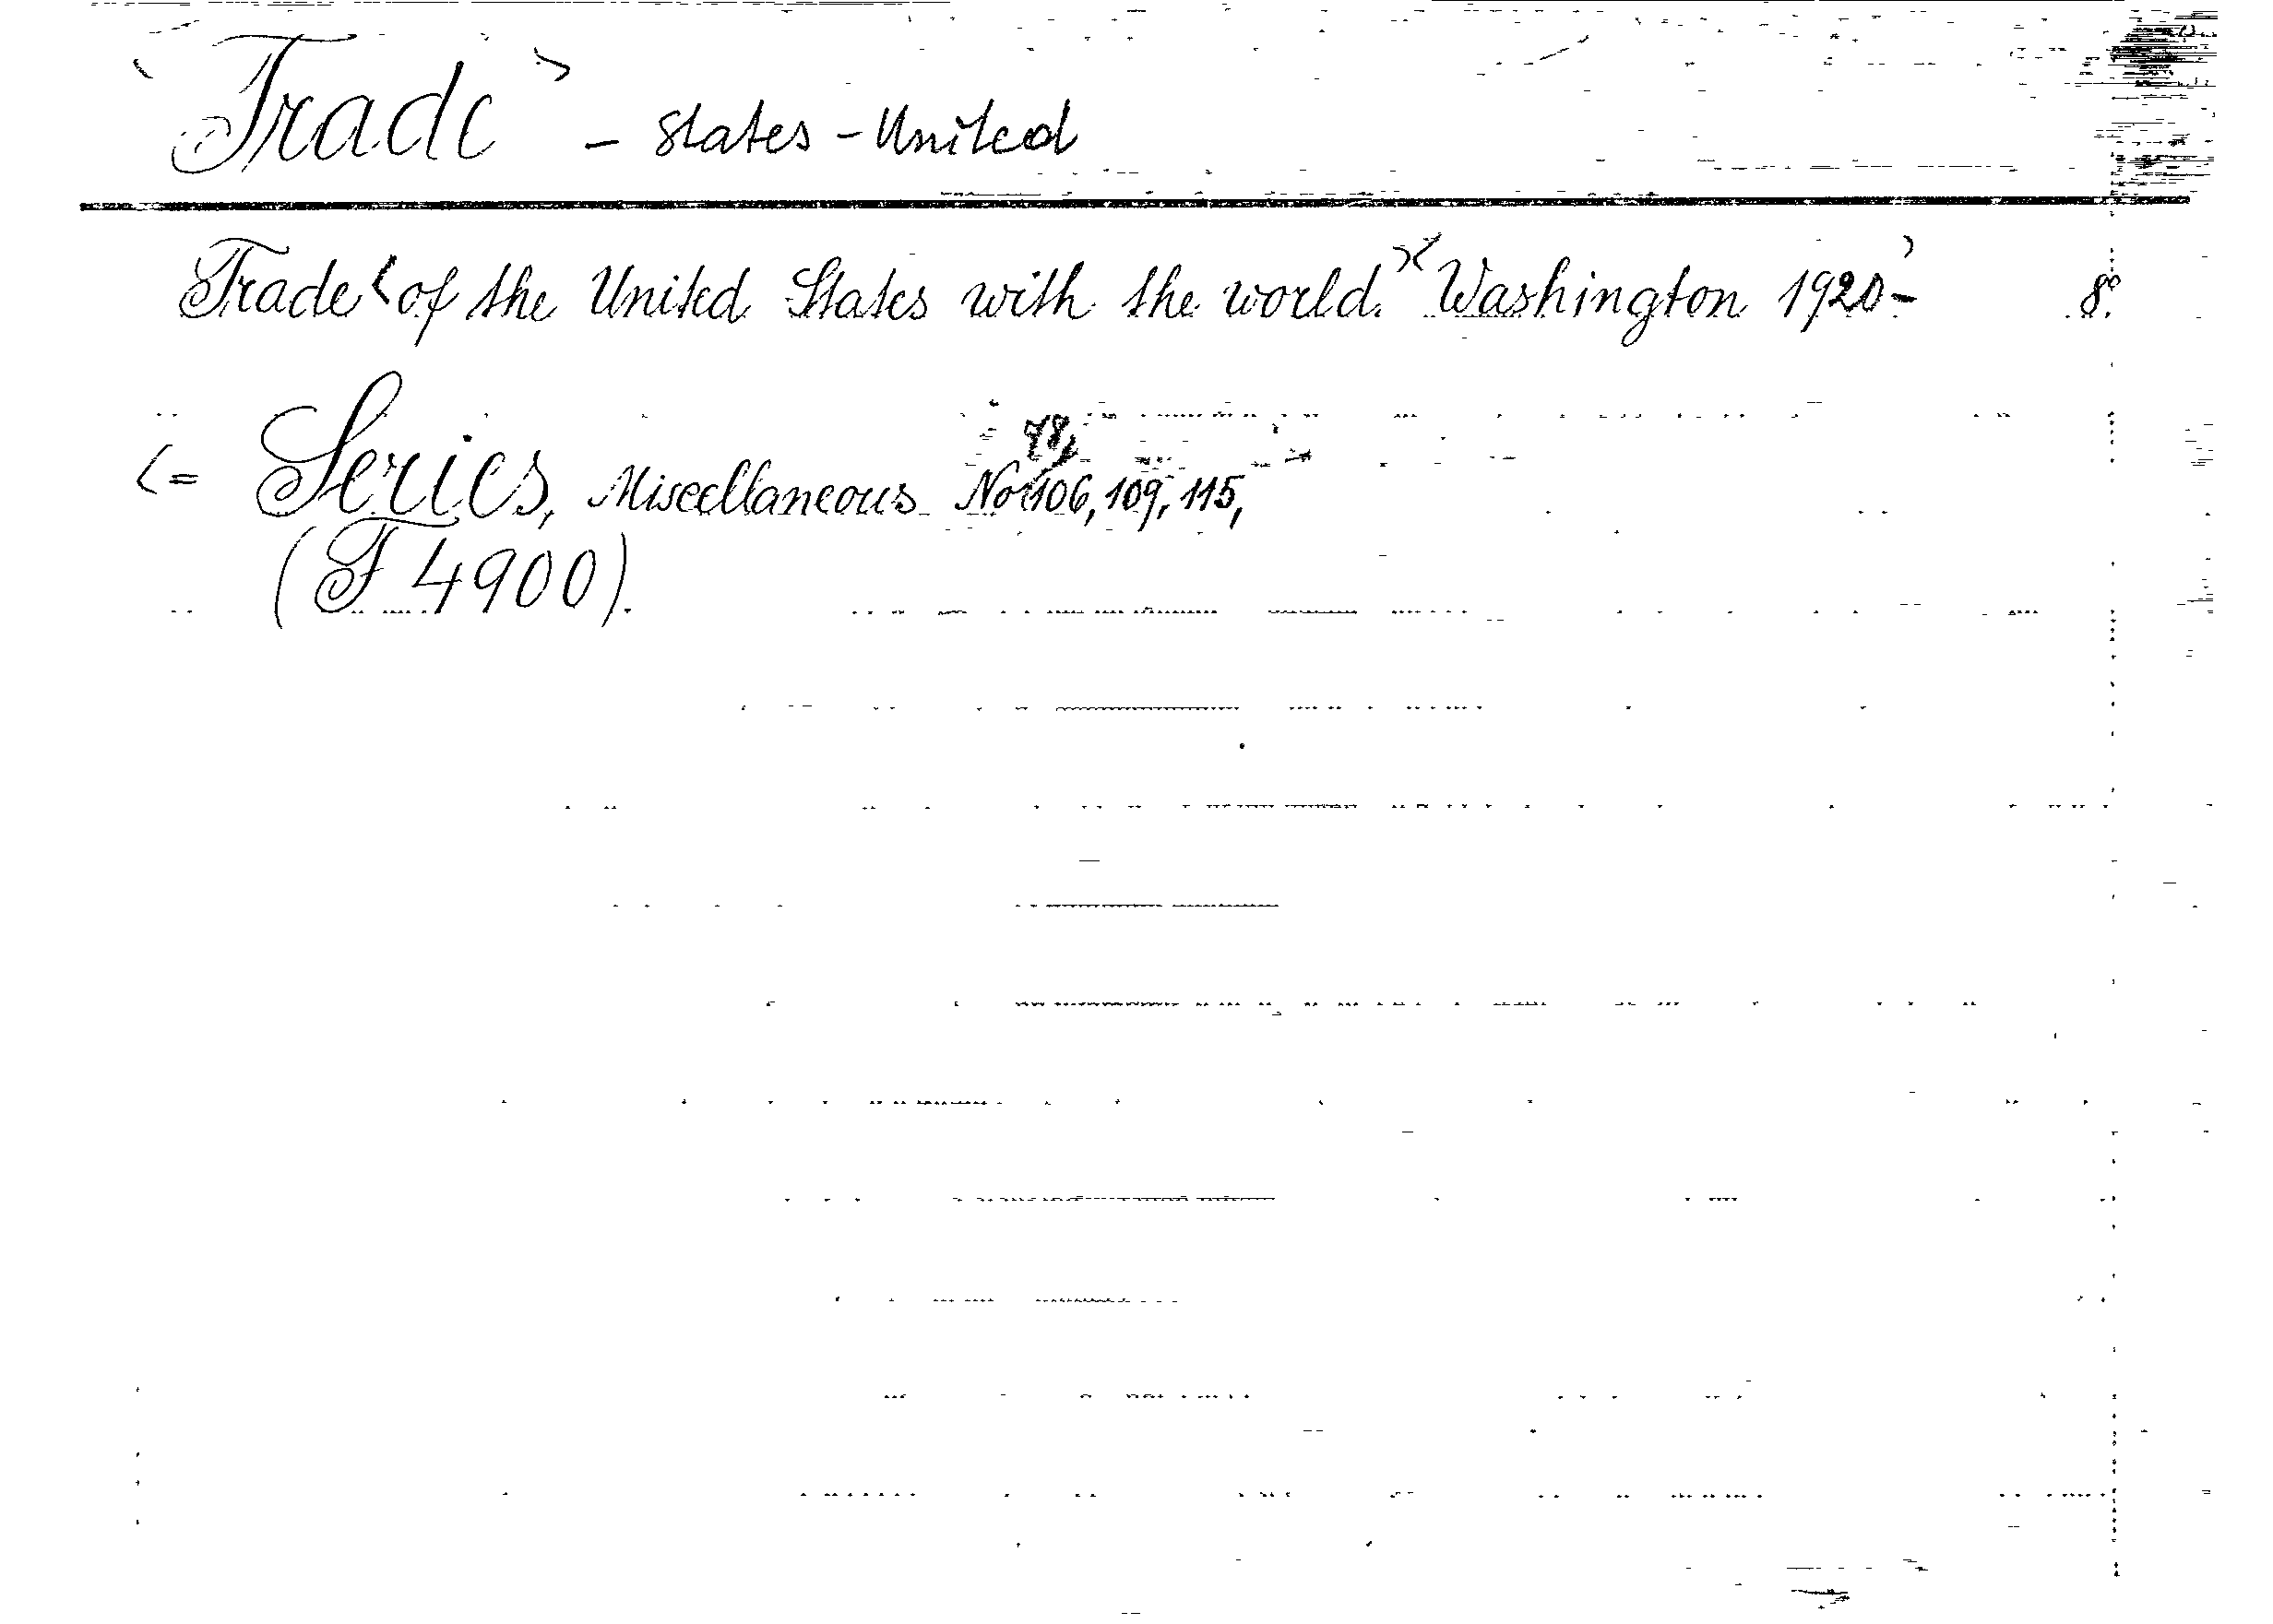 <Trade> - States - United
Trade <of the United States with the world.>< Washington 1920-> 8º.
<= Series, Miscellaneous No 78, 106, 109, 115,
(F 4900).